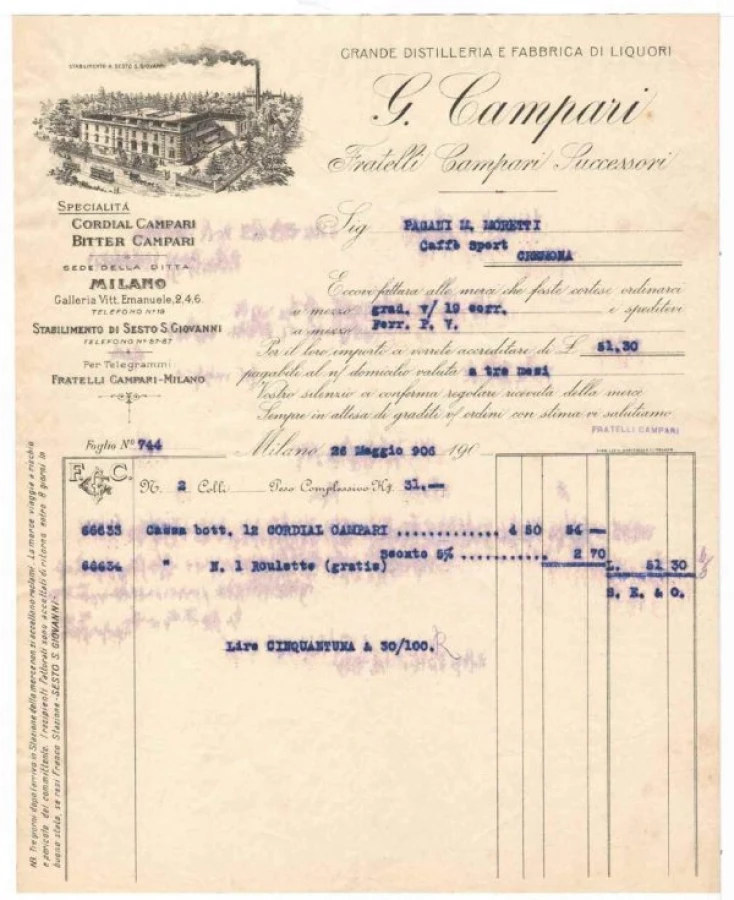 STABILIMENTO A SESTO S. GIOVANNI
GRANDE DISTILLERIA E FABBRICA DI LIQUORI
G. Campari
Fratelli Campari Successori
SPECIALITÀ
CORDIAL CAMPARI
BITTER CAMPARI
SEDE DELLA DITTA
MILANO
Galleria Vitt. Emanuele, 2,4,6.
TELEFONO Nº 19
STABILIMENTO DI SESTO S. GIOVANNI
TELEFONO Nº 87-87
Per Telegrammi
FRATELLI CAMPARI-MILANO
Sig PAGANI M. MORETTI
Caffè Sport
CREMONA
Eccovi fattura alle merci che foste cortese ordinarci
a mezzo grad. v/ 19 corr. e speditevi
a mezzo Ferr. P. V.
Per il loro importo ci vorrete accreditare di £ 51,30
pagabili al n/ domicilio valuta a tre mesi
Vostro silenzio ci conferma regolare ricevuta della merce
Sempre in attesa di graditi v/ ordini con stima vi salutiamo
FRATELLI CAMPARI
Foglio Nº 744 Milano 26 Maggio 906 190
F. C.
N. 2 Colli Peso Complessivo Kg. 31.—
66633 Cassa bott. 12 CORDIAL CAMPARI ............ 4 50 54 —
Sconto 5% ........... 2 70
66634 " N. 1 Roulette (gratis) L. 51 30
S. E. & O.
Lire CINQUANTUNA & 30/100.
NB. Tre giorni dopo l'arrivo in Stazione della merce non si accettano reclami. La merce viaggia a rischio
e pericolo del committente. I recipienti fatturati sono accettati di ritorno entro 8 giorni in
buono stato, se resi Franco Stazione-SESTO S. GIOVANNI-